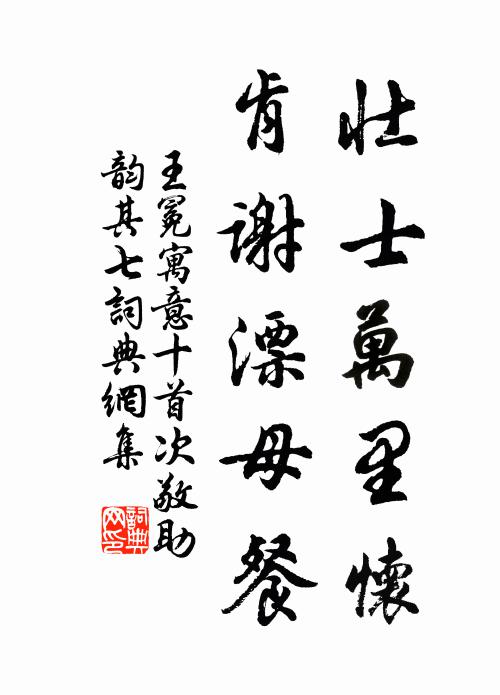 壮士萬里懷
肯謝漂母餐
王冕寓意十首次敬助
韵其七詞典網集
詞典网印